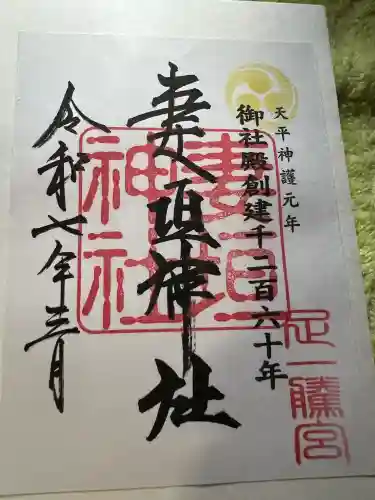 天平神護元年
御社殿創建千二百六十年
足一騰宮
妻垣神社
妻垣神社
令和七年三月